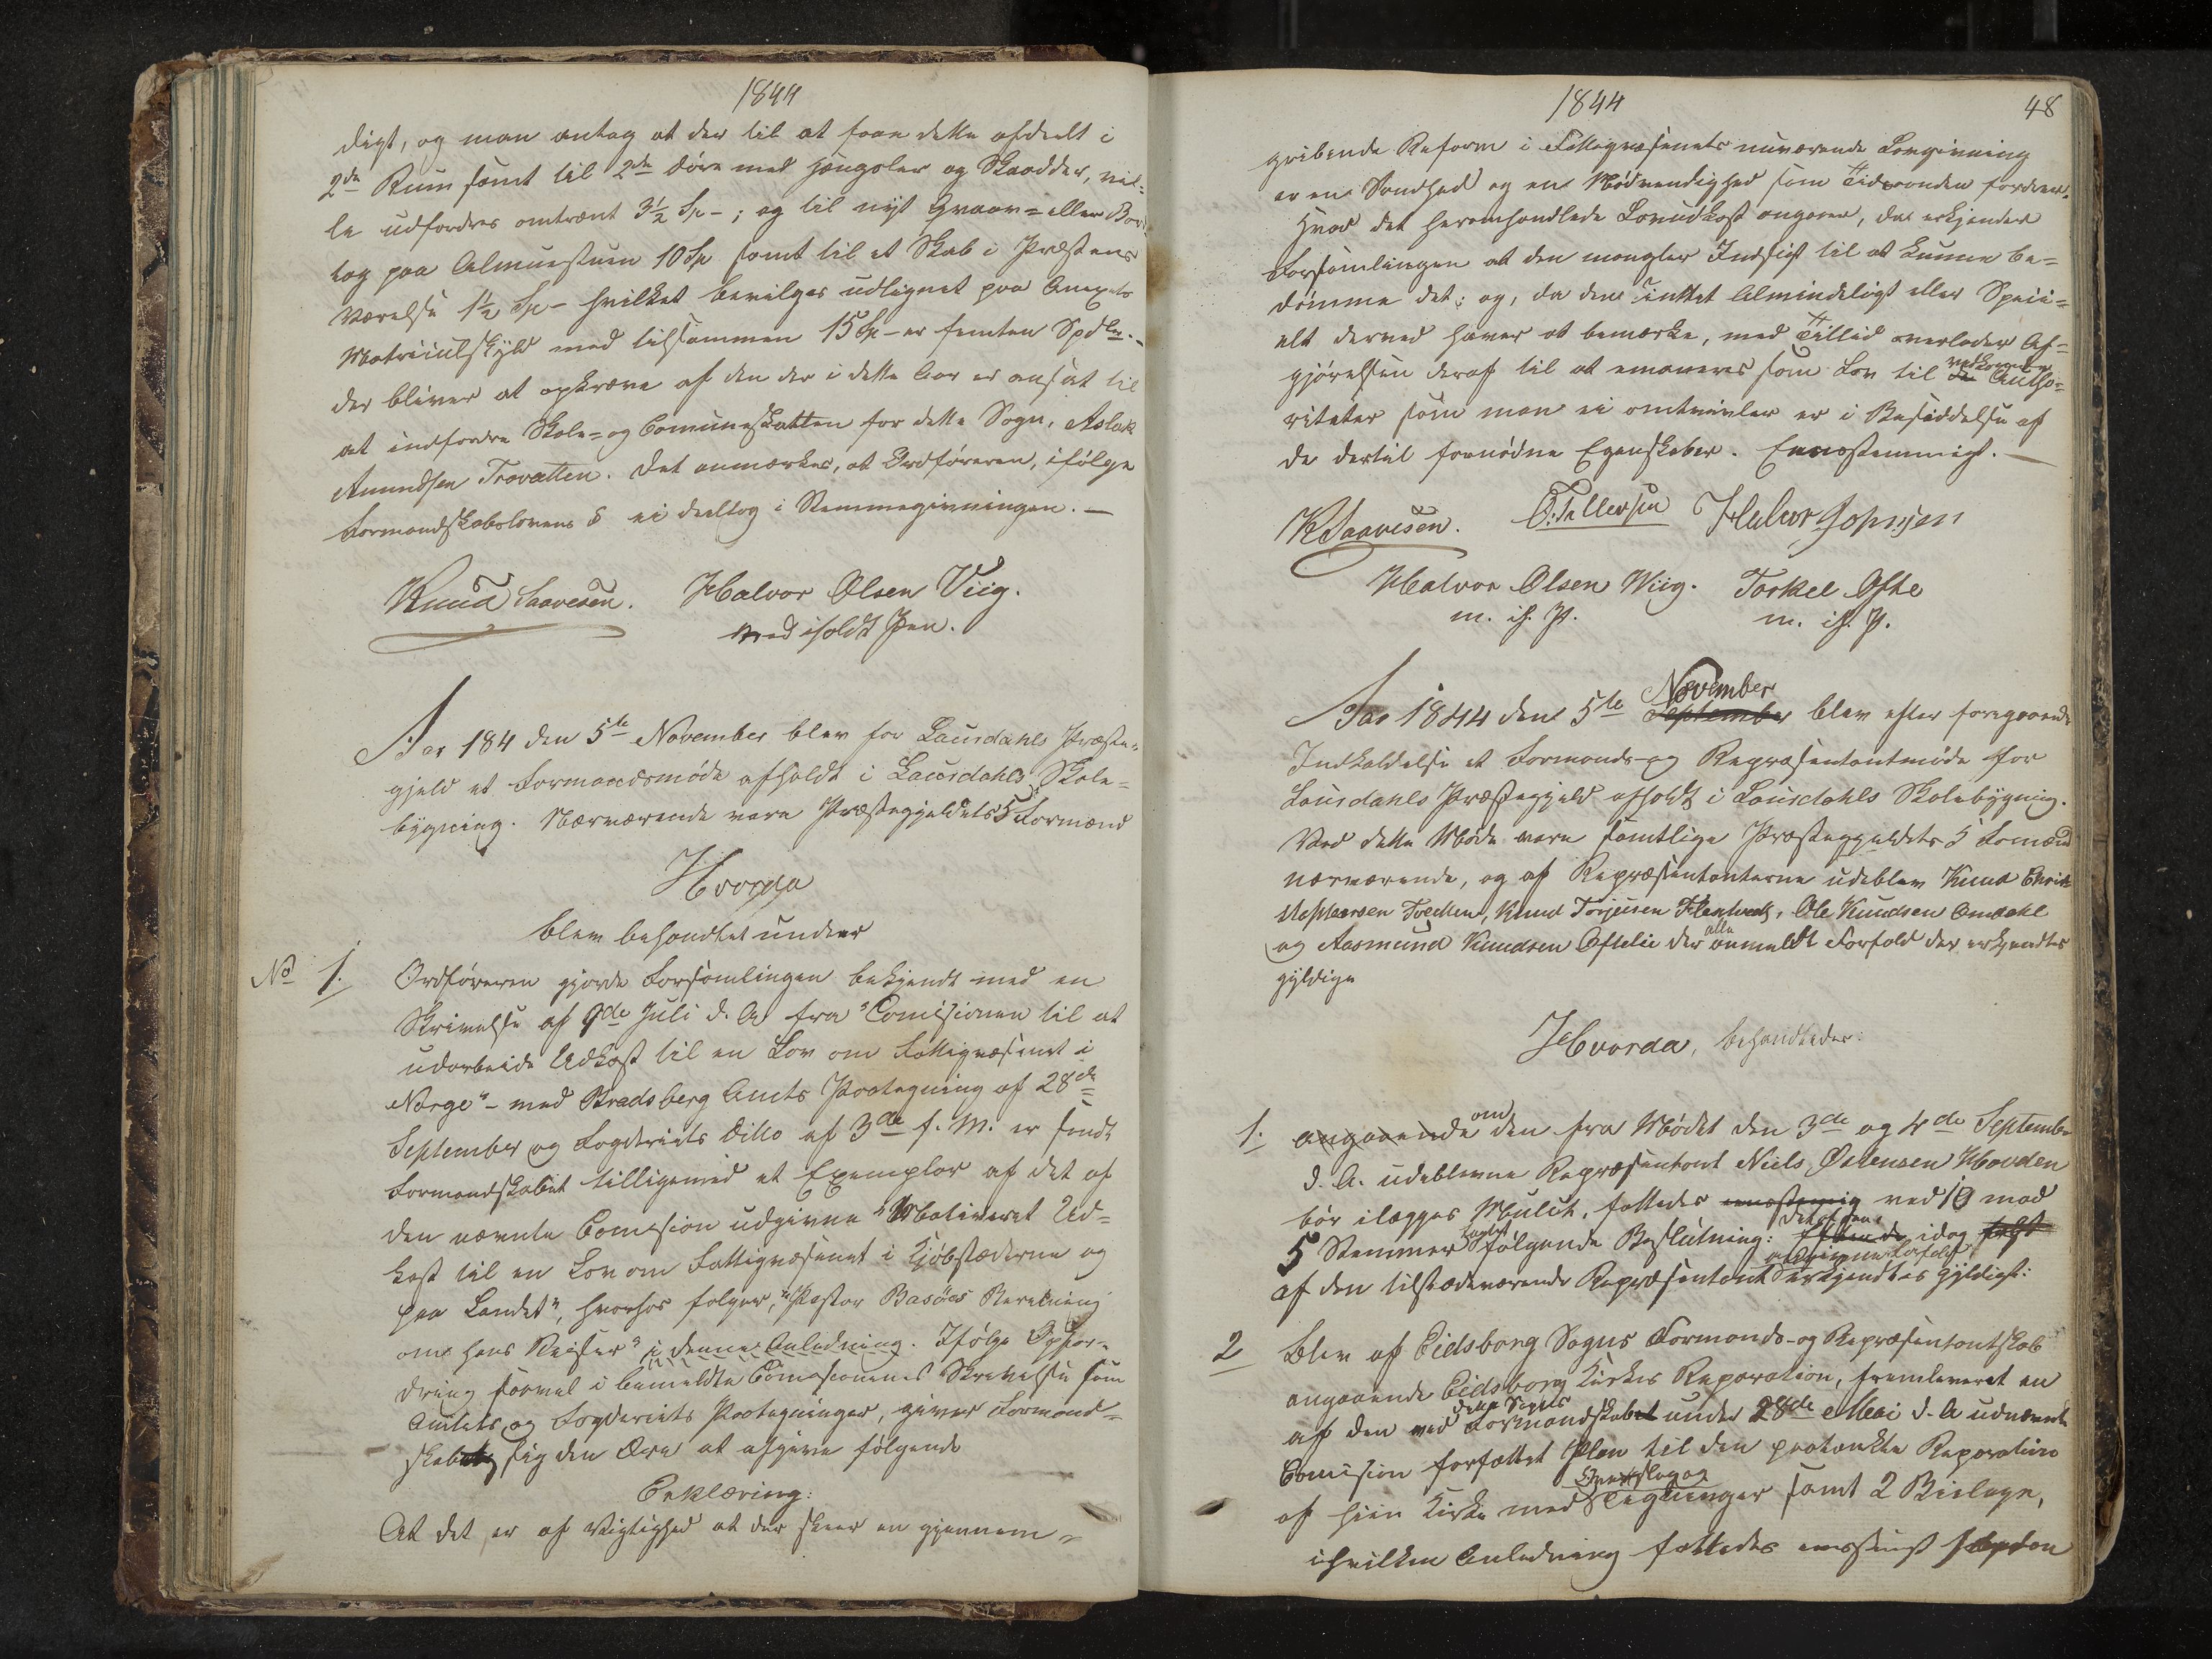 1844
digt, og man antog at der til at faae dette afdeelt i
2de Rum samt til 2de Døre med Hængsler og Skaadder, vil-
le udfordres omtrent 3½ Sp - ; og til nyt Gruve- eller Bord
tag paa Almuestuen 10 Sp samt til et Skab i Præstens
Værelse 1½ Sp - hvilket bevilges udlignet paa Anexets
Matriculskyld med tilsammen 15 Sp - er femten Spdlr. -
der bliver at opkræve af den der i dette Aar er ansat til
at indfordre Skole- og Comuneskatten for dette Sogn, Aslak
Amundsen Trovatten. Det anmærkes, at Ordføreren, ifølge
Formandskabslovens § ei deeltog i Stemmegivningen. —
Knud Saavesen. Halvor Olsen Viig.
med iholdt Pen.
Aar 184 den 5te November blev for Laurdahls Præste-
gjeld et Formandsmøde afholdt i Laurdahls Skole-
bygning. Nærværende vare Præstegjeldets 5 Formænd
Hvorpa
blev behandlet under
No 1. Ordføreren gjorde Forsamlingen bekjendt med en
Skrivelse af 9de Juli d. A fra "Comisionen til at
udarbeide Udkast til en Lov om Fattigvæsenet i
Norge" - med Bradsberg Amts Paategning af 28de
September og Fogderiets Ditto af 3de f. M. er sendt
Formandskabet tilligemed et Exemplar af det af
den nævnte Comission udgivne "Motiveret Ud-
kast til en Lov om Fattigvæsenet i Kjøbstæderne og
paa Landet", hvorhos følger, "Pastor Basöes Beretning
om hans Reiser" i denne Anledning. Ifølge Opfor-
dring saavel i bemeldte Comissionens Skrivelse som
Amtets og Fogderiets Paategninger, giver Formand-
skabet sig den Ære at afgive følgende
Erklæring:
At det er af Vigtighed at der skeer en gjennem-
1844 48
gribende Reform i Fattigvæsenets nuværende Lovgivning
er en Sandhed og en Nødvendighed som Tidsaanden fordrer.
Hvad det heromhandlede Lovudkast angaaer, da erkjender
Forsamlingen at den mangler Indsigt til at kunne be-
dømme det; og, da den intet Almindeligt eller Speci-
elt derved haver at bemærke, med Tillid overlader Af-
gjørelsen deraf til at emaneres som Lov til de vedkommende Autho-
riteter som man ei omtvivler er i Besiddelse af
de dertil fornødne Egenskaber. Eensstemmigt. —
K Saavesen. O. Tellefsen Halvor Johnsen
Halvor Olsen Wiig. Torkel Ofte
m. ih. P. m. ih. P.
November
Aar 1844 den 5te September blev efter foregaaende
Indkaldelse et Formands- og Repræsentantmøde for
Laurdahls Præstegjeld afholdt i Laurdahls Skolebygning.
Ved dette Møde vare samtlige Præstegjeldets 5 Formænd
nærværende, og af Repræsentanterne udeblev Knud
Tveitten, Knud Torjusen, Ole Knudsen Omdahl
og Aasmund Knudsen Oftelie der alle anmeldt Forfald der erkjendtes
gyldige
Hvorda, behandledes:
1. angaaende om den fra Mødet den 3de og 4de September
d. A. udeblevne Repræsentant Niels Østensen Hovden
bør ilægges Mulct, fattedes eensstemig ved 10 mod
5 Stemmer følgende Beslutning: idag
af den tilstædeværende Repræsentant erkjendtes gyldigt:
2 Blev af Eidsborg Sogns Formands- og Repræsentantskab
angaaende Eidsborg Kirkes Reparation, fremleveret en
af den ved dette Sogns Formandskabet under 28de Mai d. A udnævnte
Comision forfattet Plan til den paatænkte Reparation
af hiin Kirke med Overslag og Tegninger samt 2 Bielage,
i hvilken Anledning fattedes eensstemigt